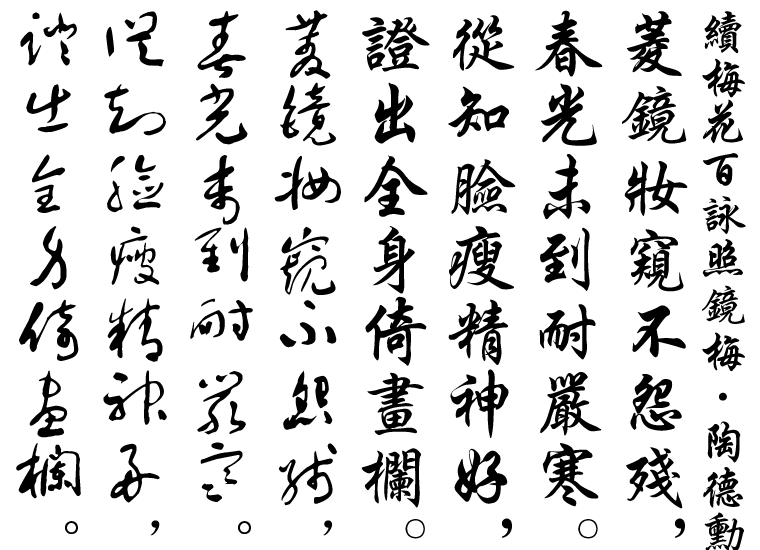 續梅花百詠照鏡梅・陶德勳
菱鏡妝窺不怨殘，
春光未到耐嚴寒。
從知臉瘦精神好，
證出全身倚畫欄。
菱鏡妝窺不怨殘，
春光未到耐嚴寒。
從知臉瘦精神好，
證出全身倚畫欄。